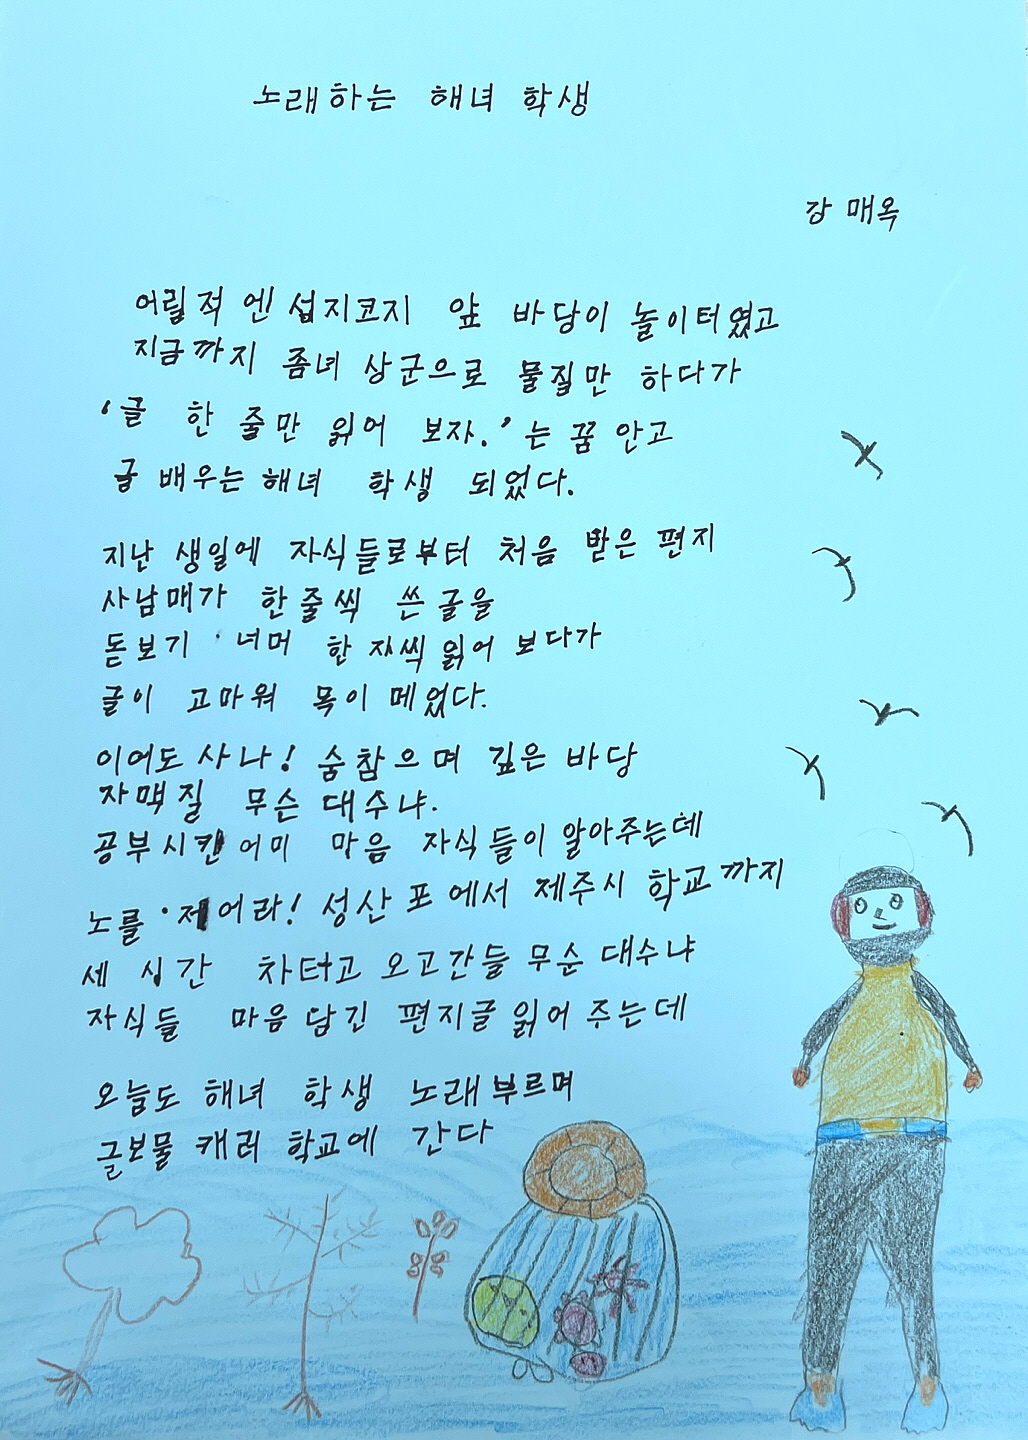 노래하는 해녀 학생
강 매옥
어릴적 엔 섭지코지 앞 바당이 놀이터였고
지금까지 좀녀 상군으로 물질만 하다가
‘글 한 줄만 읽어 보자.’는 꿈 안고
글 배우는 해녀 학생 되었다.
지난 생일에 자식들로부터 처음 받은 편지
사남매가 한줄씩 쓴 글을
돋보기 너머 한 자씩 읽어 보다가
글이 고마워 목이 메었다.
이어도 사나! 숨참으며 깊은 바당
자맥질 무슨 대수냐.
공부시킨 어미 마음 자식들이 알아주는데
노를 제어라! 성산포에서 제주시 학교까지
세 시간 차타고 오고간들 무슨 대수냐
자식들 마음 담긴 편지글 읽어 주는데
오늘도 해녀 학생 노래부르며
글보물 캐러 학교에 간다